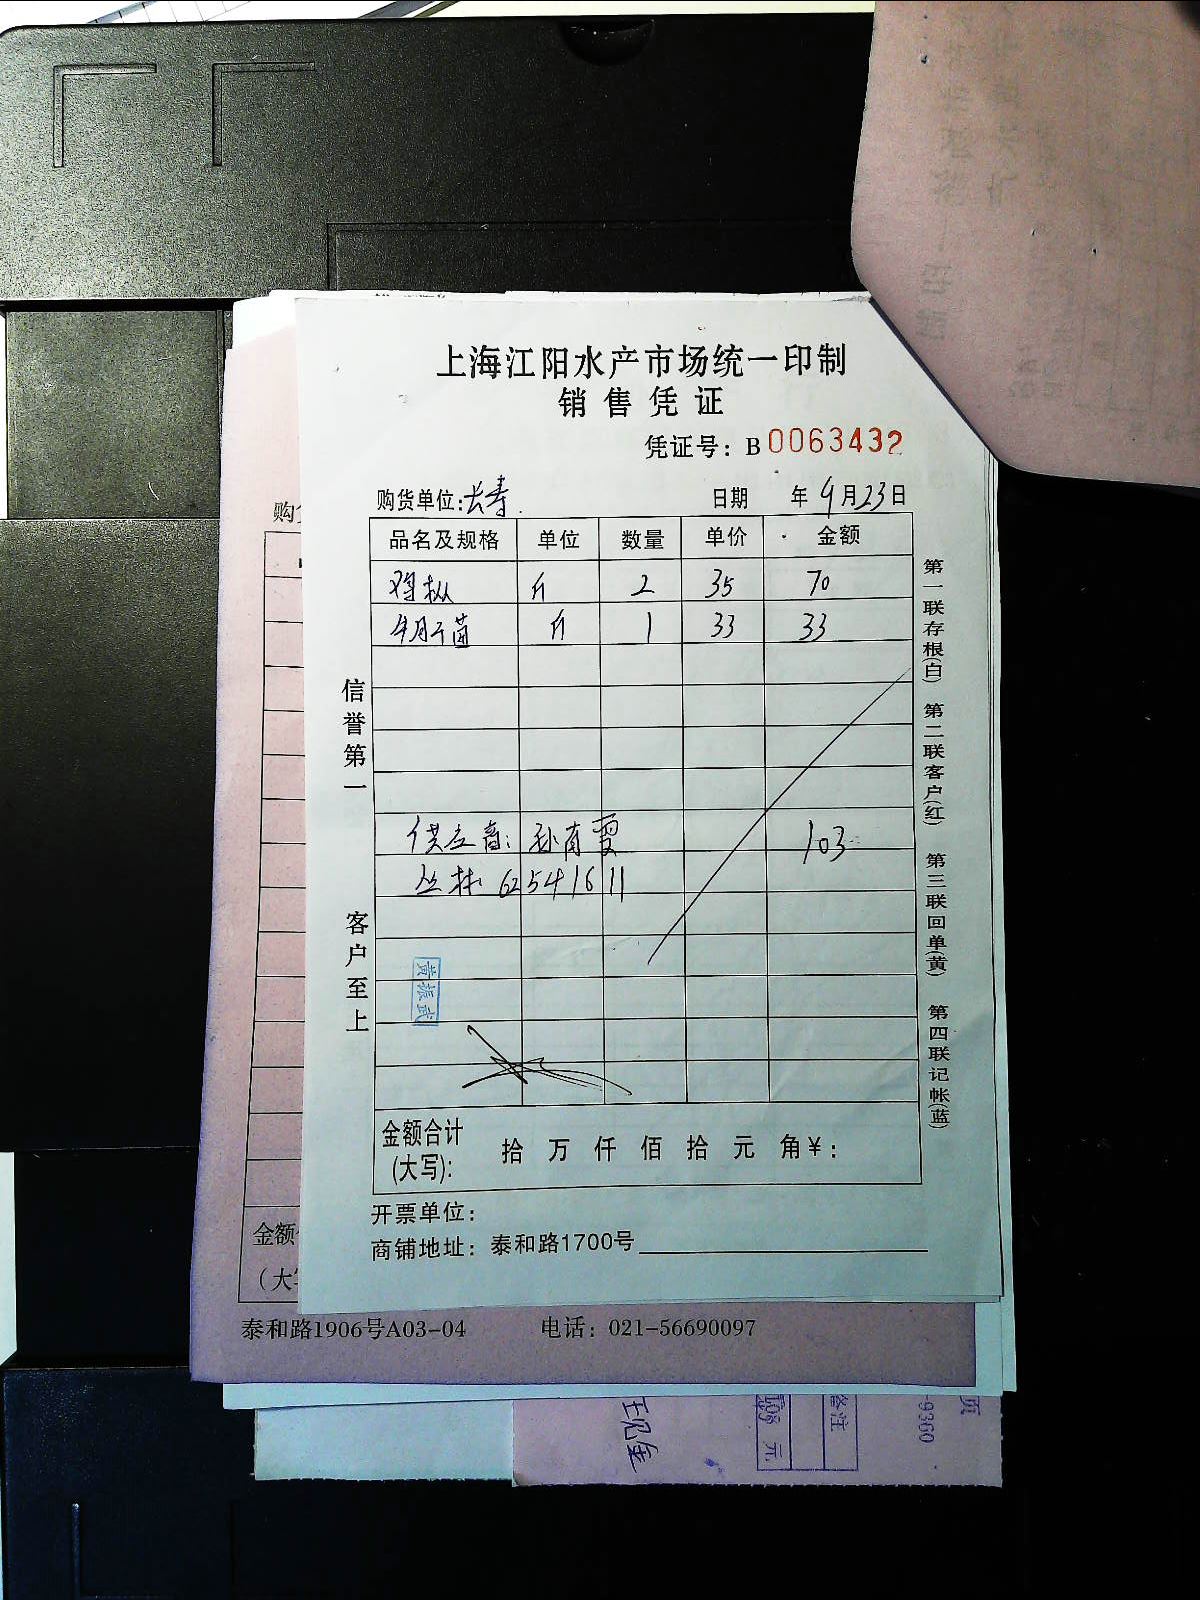 上海江阳水产市场统一印制
销售凭证
凭证号：B 0063432
购货单位：长寿
日期 年 9月23日
品名及规格 单位 数量 单价 金额
鸡枞 斤 2 35 70
斤 1 33 33
供应商：
丛林 62541611
103
黄振武
金额合计(大写)： 拾 万 仟 佰 拾 元 角 ¥：
开票单位：
商铺地址：泰和路1700号
信誉第一
客户至上
第一联存根(白) 第二联客户(红) 第三联回单(黄) 第四联记帐(蓝)
购
金额
（大
泰和路1906号A03-04 电话：021-56690097
备注
元
页
-9360